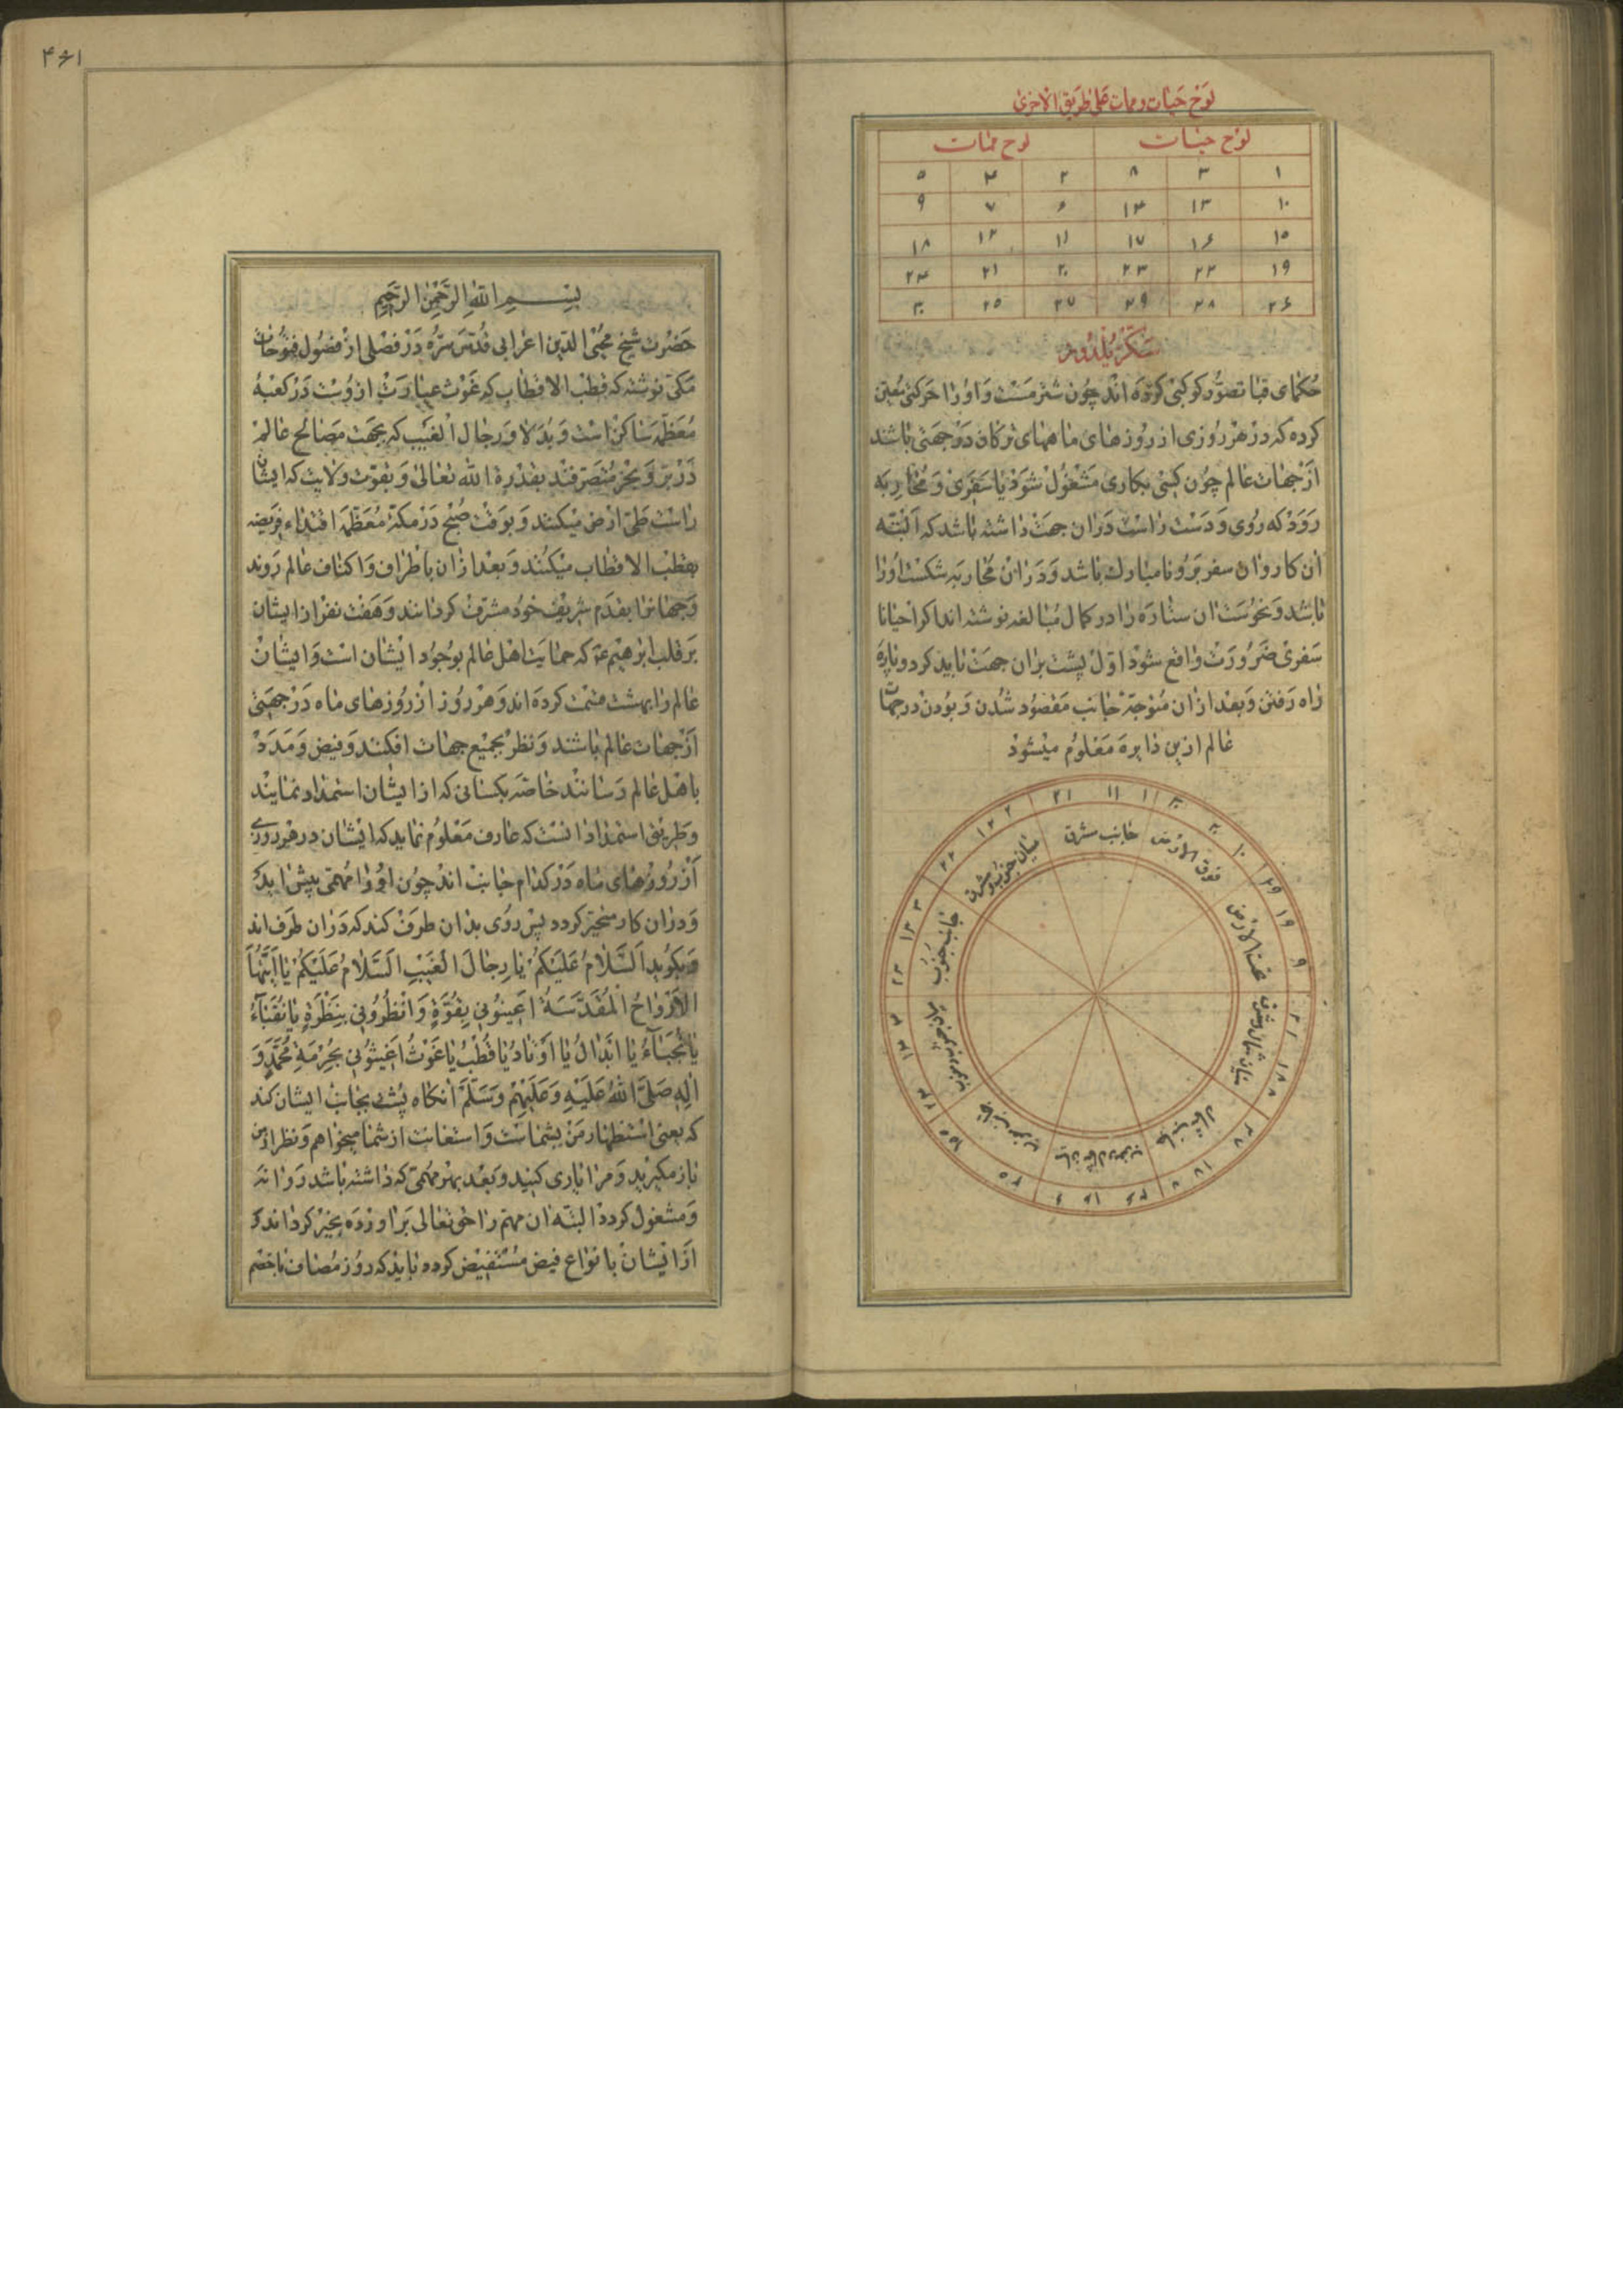 لوح حیات و ممات علی طریق الاخری
لوح حیات لوح ممات
۱ ۳ ۸ ۲ ۴ ۵
۱۰ ۱۳ ۱۴ ۶ ۷ ۹
۱۵ ۱۶ ۱۷ ۱۱ ۱۲ ۱۸
۱۹ ۲۲ ۲۳ ۲۰ ۲۱ ۲۴
۲۶ ۲۸ ۲۹ ۲۷ ۲۵ ۳۰
سکز یلدوز
حکمای قبا تصور کوکبی کرده اند چون شتر مست و او را حرکتی معین
کرده که در هر روزی از روزهای ماههای ترکان در جهتی باشند
از جهات عالم چون کسی بکاری مشغول شود یا سفری و محاربه
رود که روی و دست راست در آن جهت داشته باشد که البته
ان کار و ان سفر برو نامبارک باشد و در ان محاربه شکست او را
باشد و نحوست ان ستاره را در کمال مبالغه نوشته اند اکر احیانا
سفری ضرورت واقع شود اول پشت بران جهت باید کرد و پاره
راه رفتن و بعد از ان متوجه جانب مقصود شدن و بودن در جهات
عالم ازین دایره معلوم میشود
جانب مشرق ۱ ۱۱ ۲۱
میان جنوب و مشرق ۲ ۱۲ ۲۲
جانب جنوب ۳ ۱۳ ۲۳
میان جنوب و مغرب ۴ ۱۴ ۲۴
جانب مغرب ۱۵ ۲۵
میان شمال و مغرب ۶ ۱۶ ۲۶
جانب شمال ۷ ۱۷ ۲۷
میان شمال و مشرق ۸ ۱۸
تحت الارض ۹ ۱۹ ۲۹
فوق الارض ۱۰ ۲۰ ۳۰
۴۶۱
بسم الله الرحمن الرحیم
حضرت شیخ محیی الدین اعرابی قدس سره در فصلی از فصول فتوحات
مکی نوشته که قطب الاقطاب که غوث عبارت ازوست در کعبهٔ
معظمه ساکن است و بدلا و رجال الغیب که بجهت مصالح عالم
در بر و بحر متصرفند بقدرة الله تعالی و بقوت ولایت که ایشان
راست طی ارض میکنند و بوقت صبح در مکهٔ معظمه اقتداء فریضه
بقطب الاقطاب میکنند و بعد از ان باطراف و اکناف عالم روند
و جهانرا بقدم شریف خود مشرف کردانند و هفت نفر از ایشان
بر قلب ابرهیم عم که حمایت اهل عالم بوجود ایشان است و ایشان
عالم را بهشت قسمت کرده اند و هر روز از روزهای ماه در جهتی
از جهات عالم باشند و نظر بجمیع جهات افکنند و فیض و مدد
باهل عالم رسانند خاصه بکسانی که از ایشان استمداد نمایند
و طریق استمداد انست که عارف معلوم نماید که ایشان در هر روزی
از روزهای ماه در کدام جانب اند چون او را مهمی پیش اید
و دران کار متحیر کردد پس روی بدان طرف کند که دران طرف اند
و بکوید السلام علیکم یا رجال الغیب السلام علیکم یا ایتها
الارواح المقدسة اعینونی بقوة وانظرونی بنظرة یا نقباء
یا نجباء یا ابدال یا اوتاد یا قطب یا غوث اغیثونی بحرمة محمد و
اله صلی الله علیه و علیهم و سلم انکاه پشت بجانب ایشان کند
که یعنی استظهار من بشماست و استغاثت از شما میخواهم و نظر از من
باز مکیرید و مرا یاری کنید و بعد بهر مهمی که داشته باشد روانه
و مشغول کردد البته ان مهم را حق تعالی براورده بخیر کرداند و
از ایشان بانواع فیض مستفیض کردد باید که روز مصاف با خصم